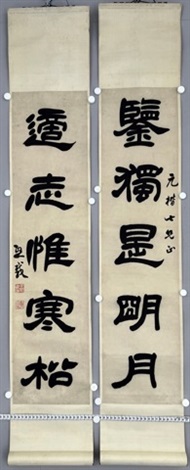 鑒獨是明月
元楷七兄正
適志惟寒松